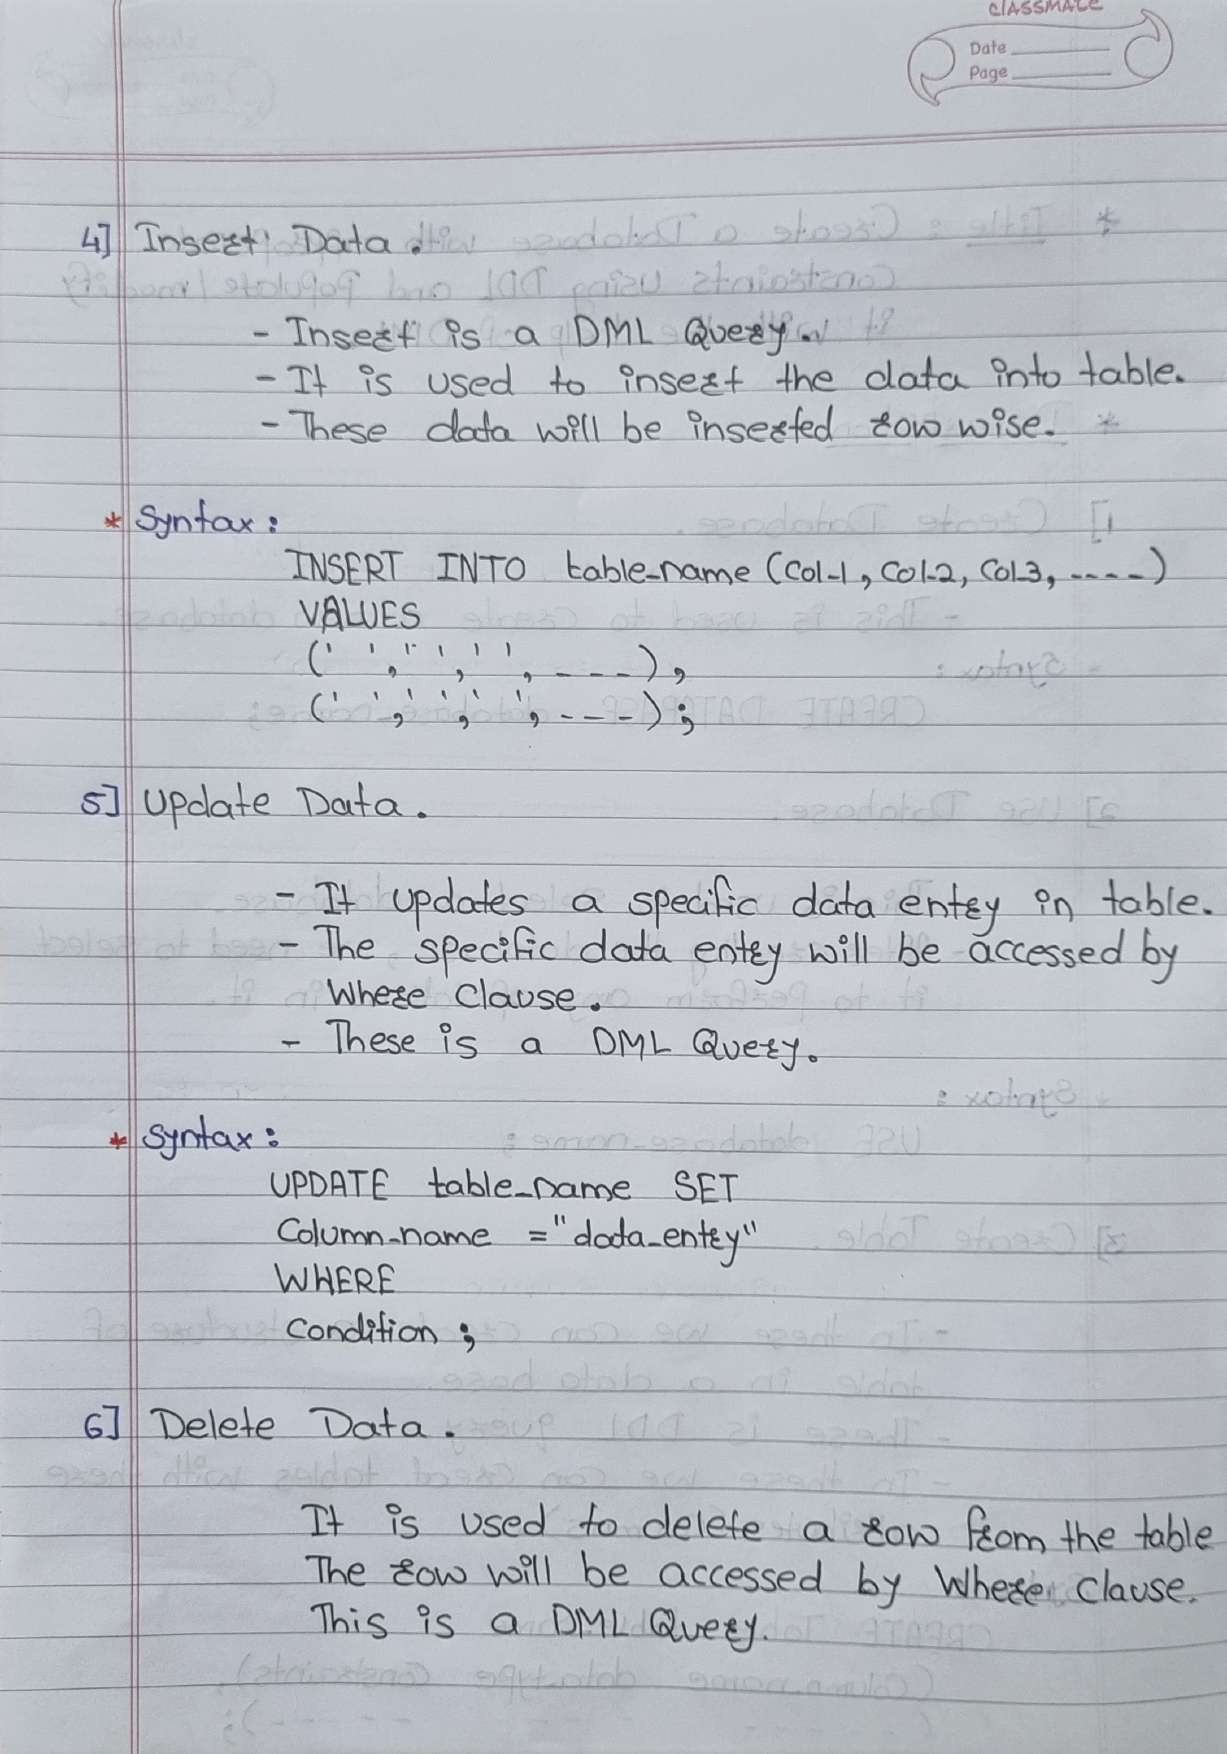 classmate
Date
Page
4] Insert Data.
- Insert is a DML Query.
- It is used to insert the data into table.
- These data will be inserted row wise.
* Syntax :
INSERT INTO table_name (Col-1, Col-2, Col-3, ----)
VALUES
(' ', ' ', ' ', ---),
(' ', ' ', ' ', ---);
5] Update Data.
- It updates a specific data entry in table.
- The specific data entry will be accessed by
Where Clause.
- These is a DML Query.
* Syntax :
UPDATE table_name SET
Column_name = "data_entry"
WHERE
Condition ;
6] Delete Data.
It is used to delete a row from the table
The row will be accessed by Where Clause.
This is a DML Query.